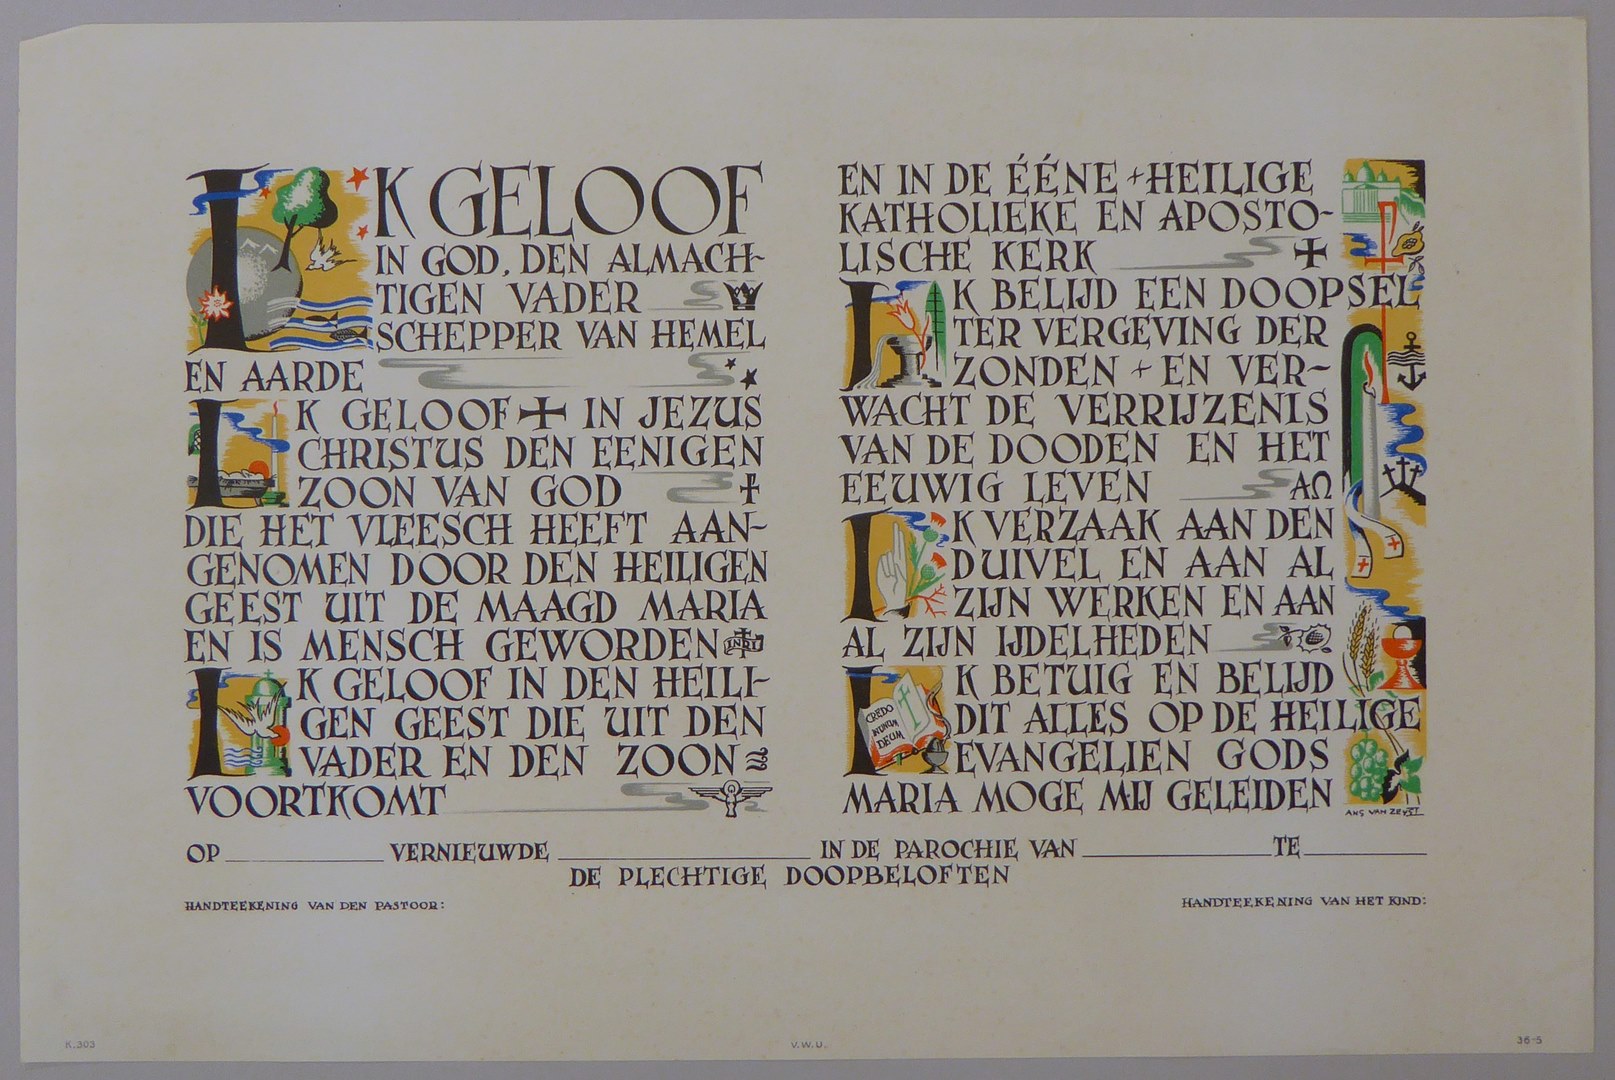 IK GELOOF
IN GOD, DEN ALMACH-
TIGEN VADER
SCHEPPER VAN HEMEL
EN AARDE
IK GELOOF IN JEZUS
CHRISTUS DEN EENIGEN
ZOON VAN GOD
DIE HET VLEESCH HEEFT AAN-
GENOMEN DOOR DEN HEILIGEN
GEEST UIT DE MAAGD MARIA
EN IS MENSCH GEWORDEN
INRI
IK GELOOF IN DEN HEILI-
GEN GEEST DIE UIT DEN
VADER EN DEN ZOON
VOORTKOMT
EN IN DE ÉÉNE + HEILIGE
KATHOLIEKE EN APOSTO-
LISCHE KERK
IK BELIJD EEN DOOPSEL
TER VERGEVING DER
ZONDEN + EN VER-
WACHT DE VERRIJZENIS
VAN DE DOODEN EN HET
EEUWIG LEVEN ΑΩ
IK VERZAAK AAN DEN
DUIVEL EN AAN AL
ZIJN WERKEN EN AAN
AL ZIJN IJDELHEDEN
IK BETUIG EN BELIJD
DIT ALLES OP DE HEILIGE
EVANGELIEN GODS
MARIA MOGE MIJ GELEIDEN
CREDO
IN UNUM
DEUM
ANS VAN ZEYST
OP VERNIEUWDE IN DE PAROCHIE VAN TE
DE PLECHTIGE DOOPBELOFTEN
HANDTEEKENING VAN DEN PASTOOR:
HANDTEEKENING VAN HET KIND:
K.303
V.W.U.
36-5